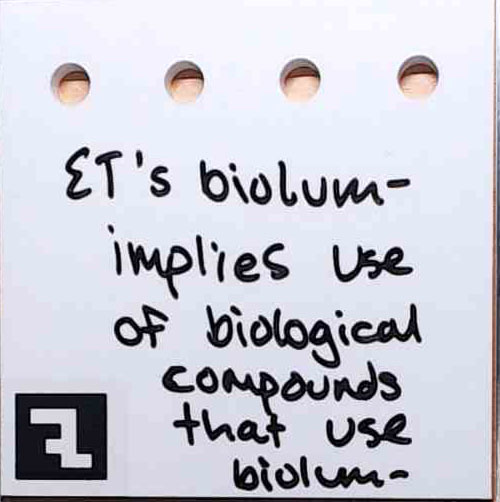 ET's biolum-
implies use
of biological
compounds
that use
biolum-